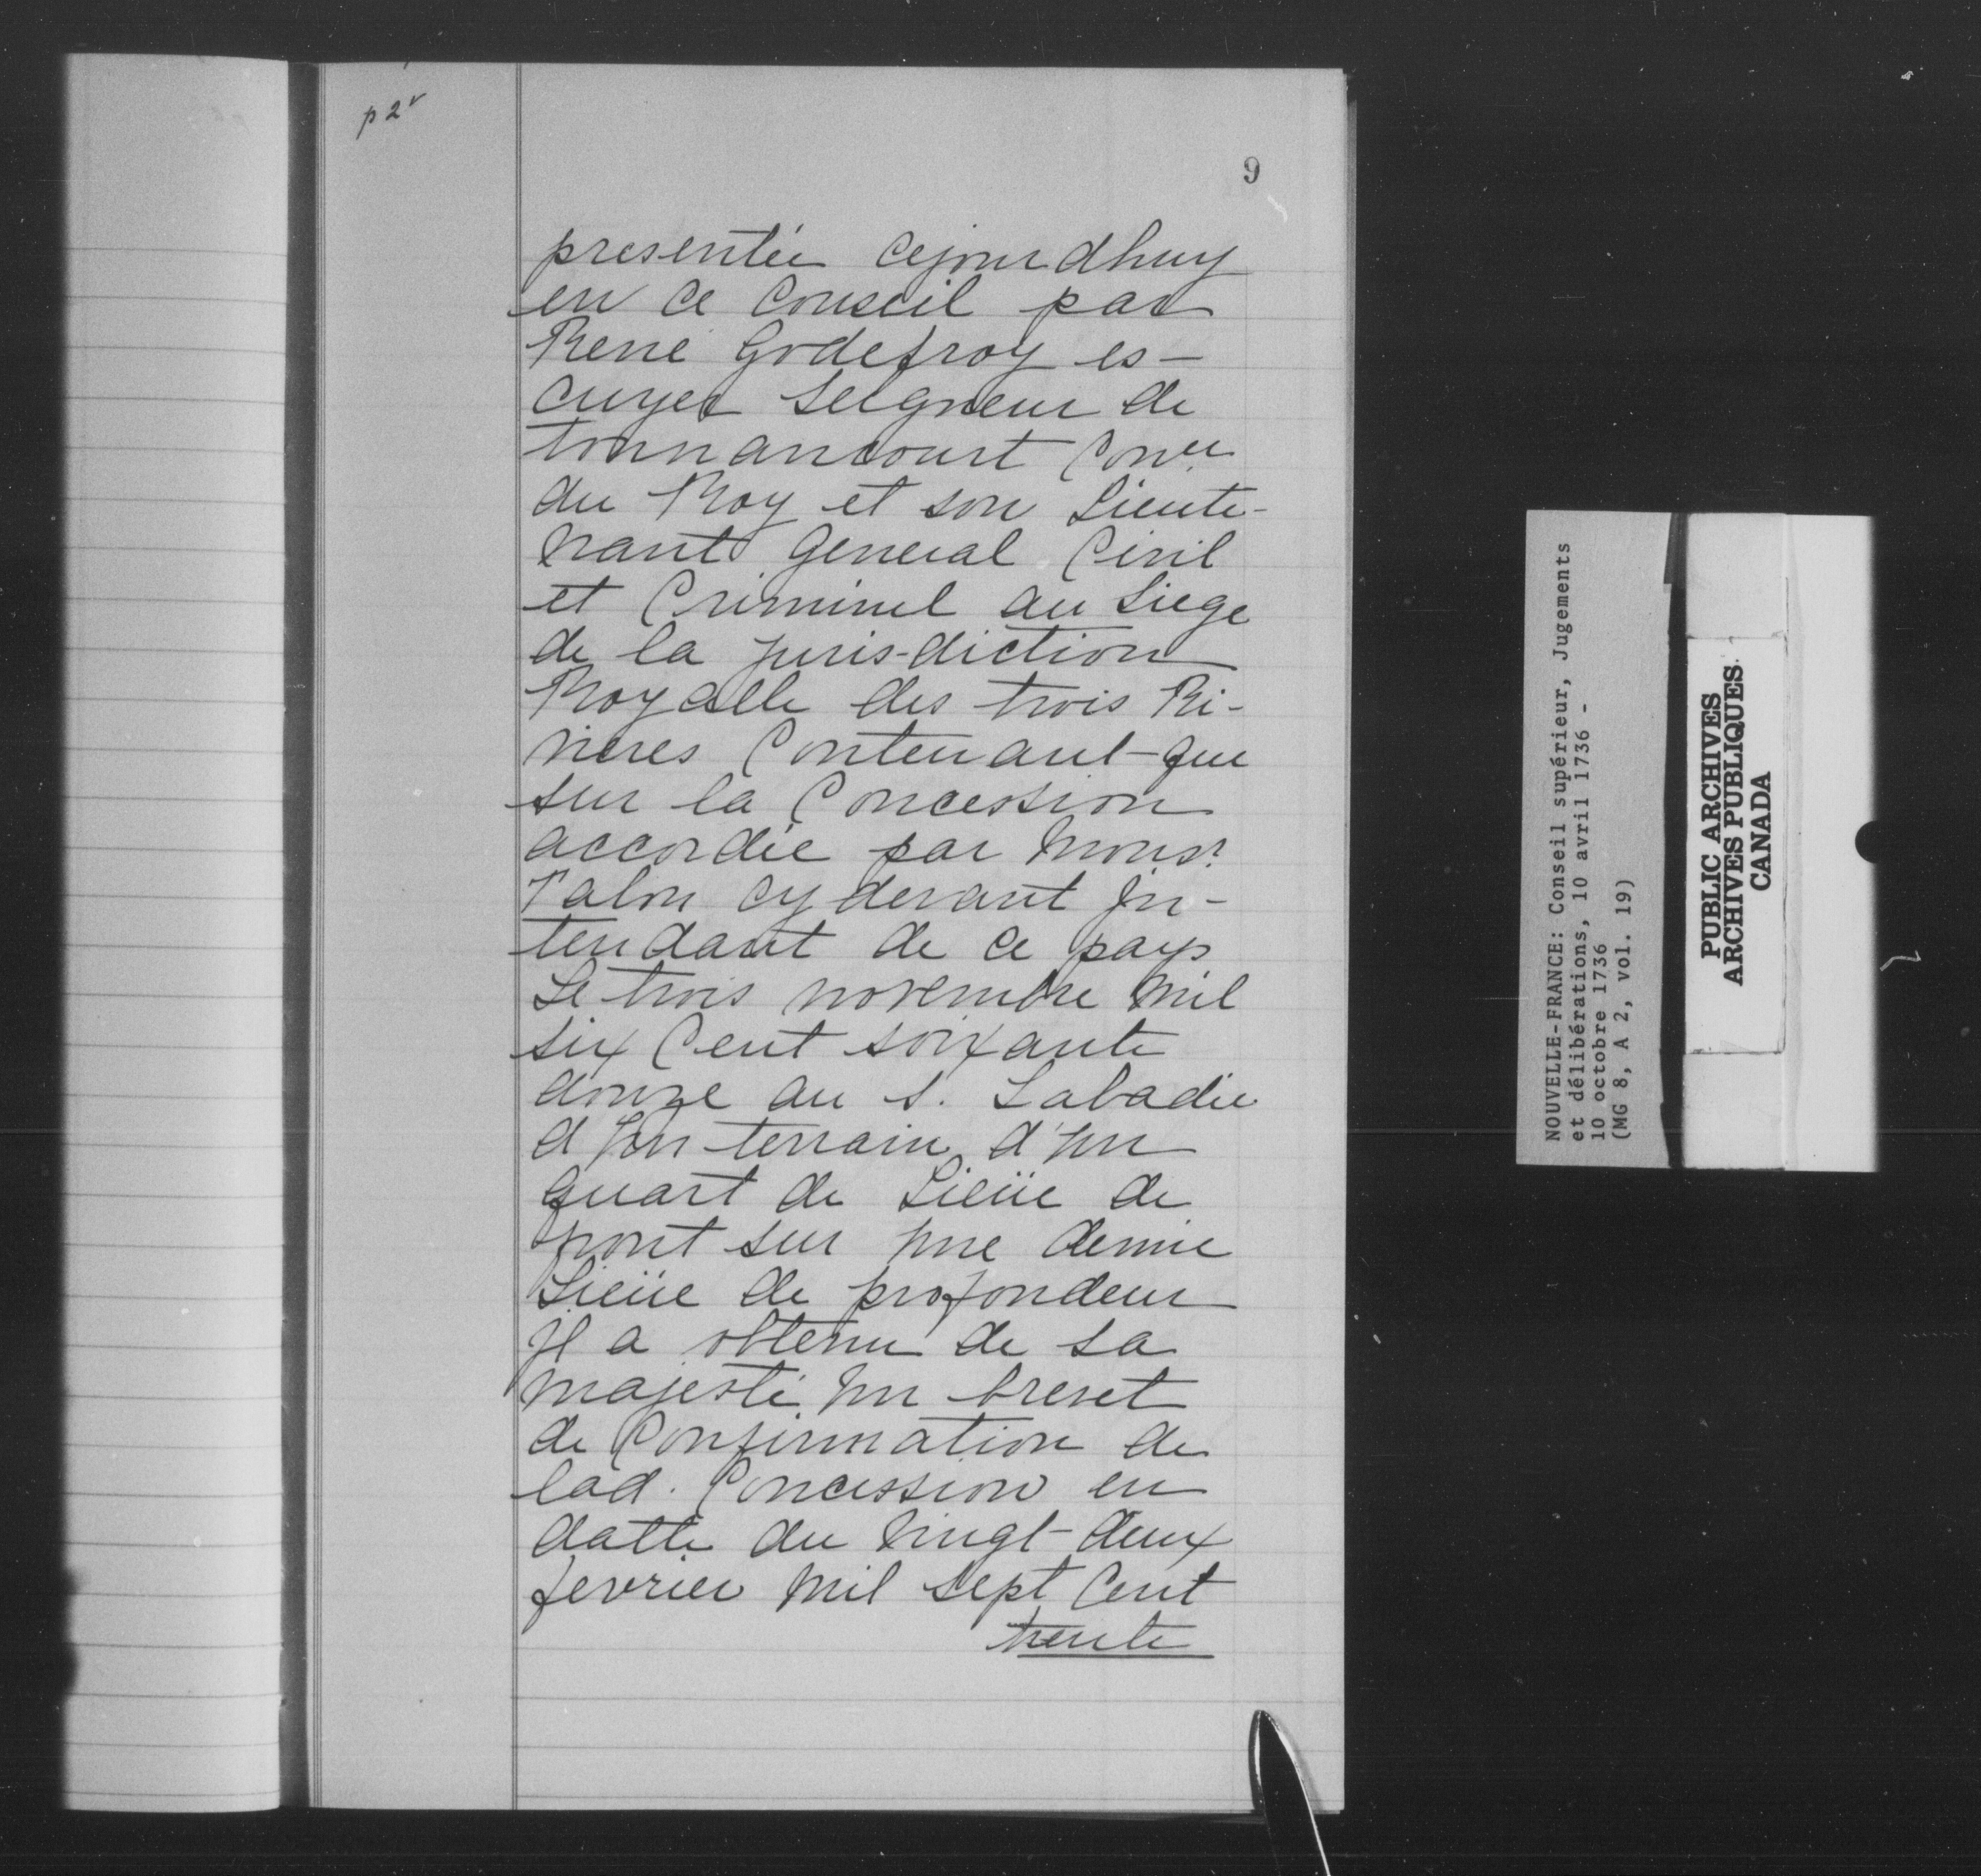 p 2v
9
presentée cejourdhuy
en ce Conseil par
René Godefroy es-
cuyer Seigneur de
tonnancourt Conr
du Roy et son Lieute-
nant General Civil
et Criminel au Siege
de la juris-diction
Royalle des trois Ri-
vieres Contenant-que
sur la Concession
accordée par Monsr
Talon cy devant In-
tendant de ce pays
Le trois novembre mil
six Cent soixante
douze au S. Labadie
d'un terrain d'un
quart de Lieüe de
front sur une demie
Lieüe de profondeur
Il a obtenu de sa
majesté un brevet
de Confirmation de
lad. Concession en
datte du vingt-deux
fevrier mil sept Cent
trente
NOUVELLE-FRANCE: Conseil supérieur, Jugements
et délibérations, 10 avril 1736 -
10 octobre 1736
(MG 8, A 2, vol. 19)
PUBLIC ARCHIVES
ARCHIVES PUBLIQUES
CANADA